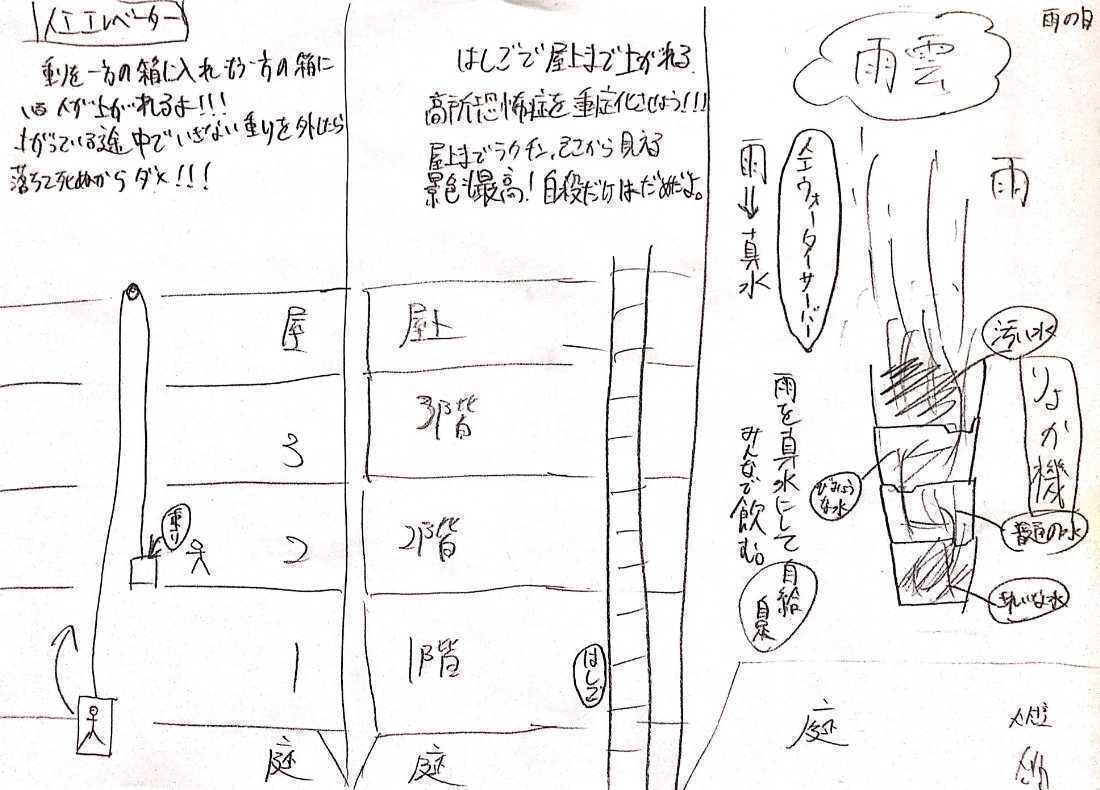 人工エレベーター
重りを一方の箱に入れもう一方の箱に
人が上がれるよ!!!
上がっている途中でいきない重りを外したら
落ちて死ぬからダメ!!!
屋
3
2
1
重り
庭
はしごで屋上まで上がれる
高所恐怖症を重症化させよう!!!
屋上までラクチン、そこから見える
景色も最高!自殺だけはだめだよ。
屋上
3階
2階
1階
はしご
庭
雨の日
雨雲
雨
人工ウォーターサーバー
雨⇒真水
汚い水
りょか機
びみょうな水
普通の水
きれいな水
雨を真水にして自給
自足
みんなで飲む。
庭